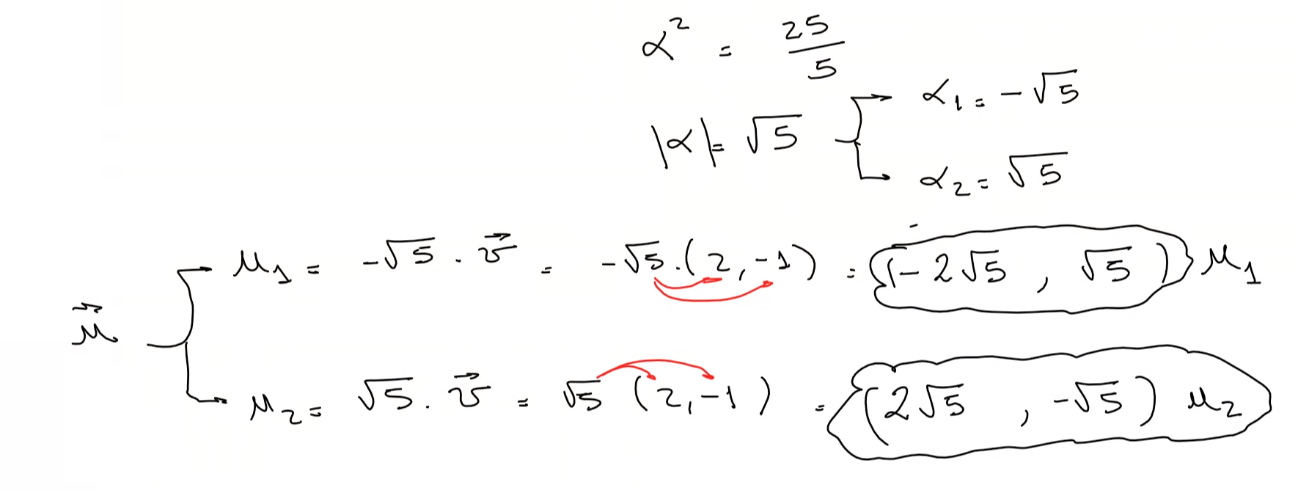 α² = 25/5
|α| = √5
α₁ = -√5
α₂ = √5
μ⃗
μ₁ = -√5 . v⃗ = -√5.(2,-1) = (-2√5 , √5) μ₁
μ₂ = √5 . v⃗ = √5 (2,-1) = (2√5 , -√5) μ₂